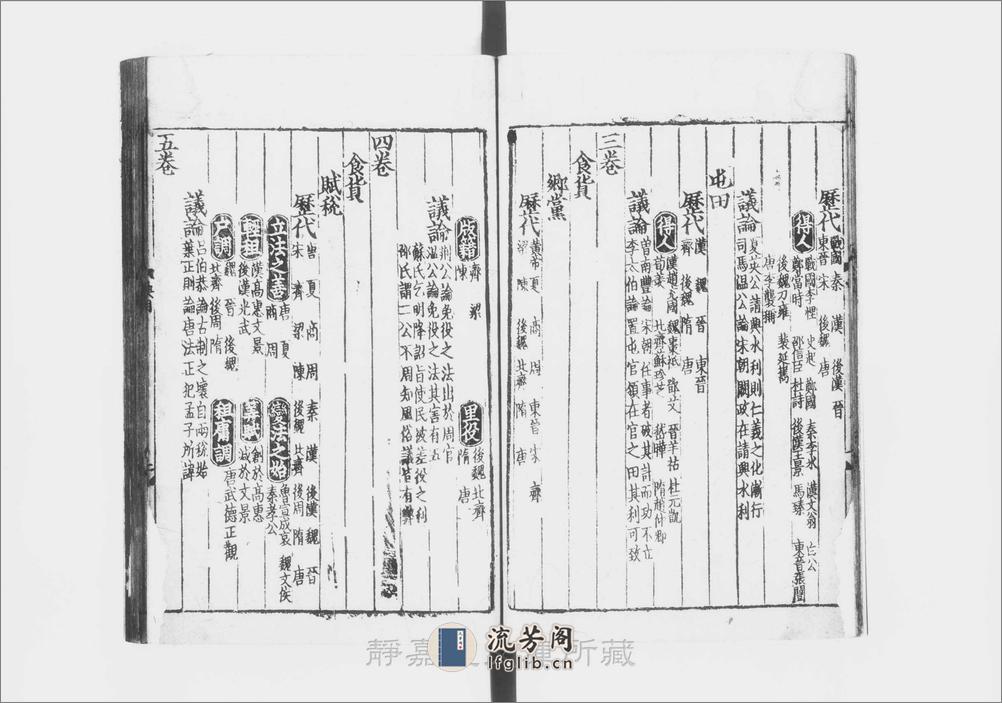 歷代 戰國 秦 漢 後漢 晉
東晉 宋 後魏 唐
得人 戰國李悝 史起 鄭國 秦李冰 漢文翁
鄭當時 邵信臣 杜詩 後漢王景 馬臻 東晉張闓
後魏刁雍 裴延雋
唐李襲稱
議論 夏英公請興水利則仁義之化漸行
司馬溫公論宋朝闕政在請興水利
屯田
歷代 漢 魏 晉 東晉
齊 後魏 隋 唐
得人 漢趙充國 魏棗祗 鄧艾 晉羊祜 杜元凱
荀羨 北齊蘇珍芝 嵇曄 隋趙仲卿
議論 曾南豐論宋朝任事者破其計而功不立
李太伯論置屯官領在官之田其利可致
三卷
食貨
鄉黨
歷代 黃帝 夏 商 周 東晉 宋 齊
梁 陳 後魏 北齊 隋 唐
版籍 齊 梁
陳
里役 後魏 北齊
隋 唐
議論 荆公論免役之法出於周官
溫公論免役之法其害有五
蘇氏乞明降詔旨使民徒差役之利
邵氏謂二公不周知風俗議皆有弊
四卷
食貨
賦稅
歷代 唐 夏 商 周 秦 漢 後漢 魏 晉
宋 齊 梁 陳 後魏 北齊 後周 隋 唐
立法之善 唐 夏
商 周
變法之始 魯宣成哀 魏文侯
秦孝公
輕租 漢高惠文景
後漢光武
算賦 創於高惠
減於文景
戶調 魏 晉 後魏
北齊 後周 隋
租庸調 唐武德正觀
議論 呂伯恭論古制之壞自兩稅始
葉正則論唐法正犯孟子所諱
五卷
靜嘉 所藏
流芳阁
lfglib.cn